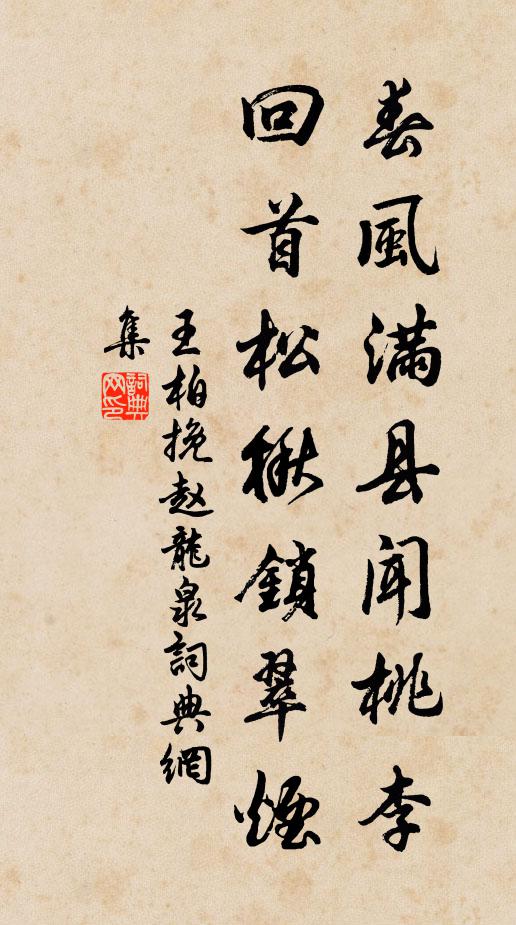 春風滿县闻桃李
回首松楸鎖翠煙
王柏挽赵龍泉詞典網
集
詞典网印